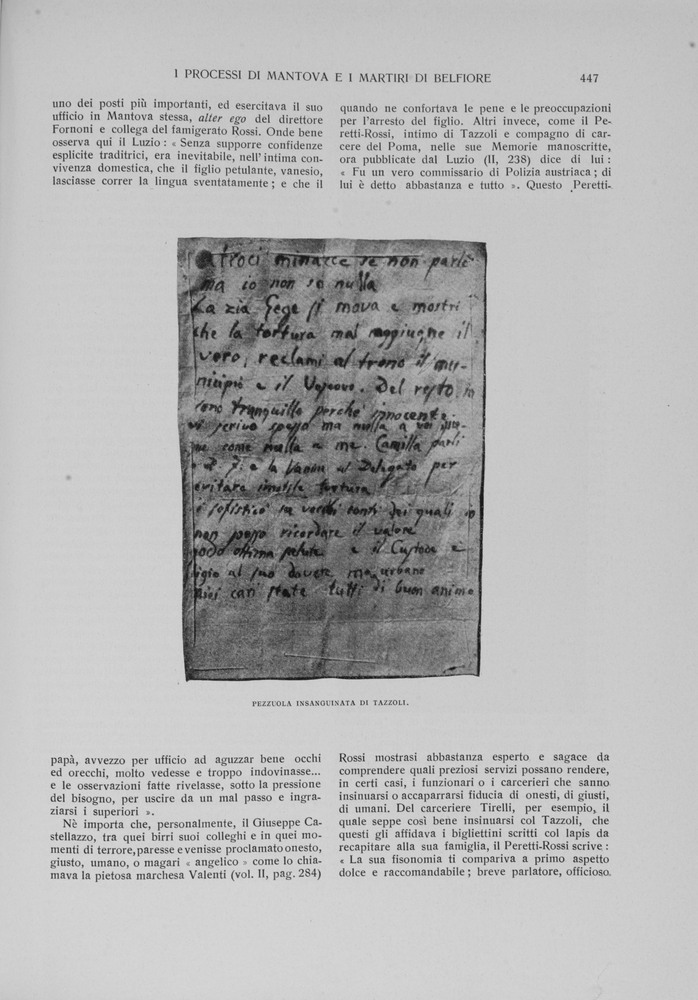 I PROCESSI DI MANTOVA E I MARTIRI DI BELFIORE 447
uno dei posti più importanti, ed esercitava il suo
ufficio in Mantova stessa, alter ego del direttore
Fornoni e collega del famigerato Rossi. Onde bene
osserva qui il Luzio : « Senza supporre confidenze
esplicite traditrici, era inevitabile, nell' intima con-
vivenza domestica, che il figlio petulante, vanesio,
lasciasse correr la lingua sventatamente ; e che il
quando ne confortava le pene e le preoccupazioni
per l'arresto del figlio. Altri invece, come il Pe-
retti-Rossi, intimo di Tazzoli e compagno di car-
cere del Poma, nelle sue Memorie manoscritte,
ora pubblicate dal Luzio (II, 238) dice di lui :
« Fu un vero commissario di Polizia austriaca ; di
lui è detto abbastanza e tutto ». Questo Peretti-
atroci minacce se non parli
ma io non so nulla
La zia Gege si mova e mostri
che la tortura mal raggiugne il
vero, reclami al trono il mu-
nicipio e il Vescovo. Del resto io
sono tranquillo perchè innocente
vi scrivo spesso ma nulla a voi
come nulla a me. Camilla parli
e la al Delegato per
evitare inutile tortura
tanti dei quali io
non posso ricordare il valore
godo ottima salute e il Custode è
ligio al suo dovere ma urbano
miei cari state tutti di buon animo
PEZZUOLA INSANGUINATA DI TAZZOLI.
papà, avvezzo per ufficio ad aguzzar bene occhi
ed orecchi, molto vedesse e troppo indovinasse...
e le osservazioni fatte rivelasse, sotto la pressione
del bisogno, per uscire da un mal passo e ingra-
ziarsi i superiori ».
Nè importa che, personalmente, il Giuseppe Ca-
stellazzo, tra quei birri suoi colleghi e in quei mo-
menti di terrore, paresse e venisse proclamato onesto,
giusto, umano, o magari « angelico » come lo chia-
mava la pietosa marchesa Valenti (vol. II, pag. 284)
Rossi mostrasi abbastanza esperto e sagace da
comprendere quali preziosi servizi possano rendere,
in certi casi, i funzionari o i carcerieri che sanno
insinuarsi o accaparrarsi fiducia di onesti, di giusti,
di umani. Del carceriere Tirelli, per esempio, il
quale seppe così bene insinuarsi col Tazzoli, che
questi gli affidava i bigliettini scritti col lapis da
recapitare alla sua famiglia, il Peretti-Rossi scrive :
« La sua fisonomia ti compariva a primo aspetto
dolce e raccomandabile ; breve parlatore, officioso.